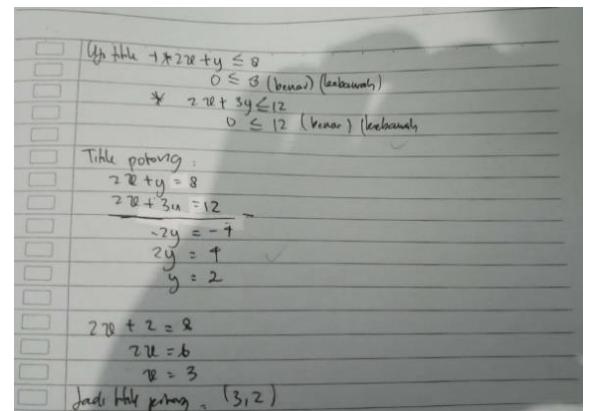 Uji titik * 2x + y ≤ 8
0 ≤ 8 (benar) (kebawah)
* 2x + 3y ≤ 12
0 ≤ 12 (benar) (kebawah
Titik potong :
2x + y = 8
2x + 3y = 12 -
-2y = -4
2y = 4
y = 2
2x + 2 = 8
2x = 6
x = 3
Jadi titik potong = (3,2)